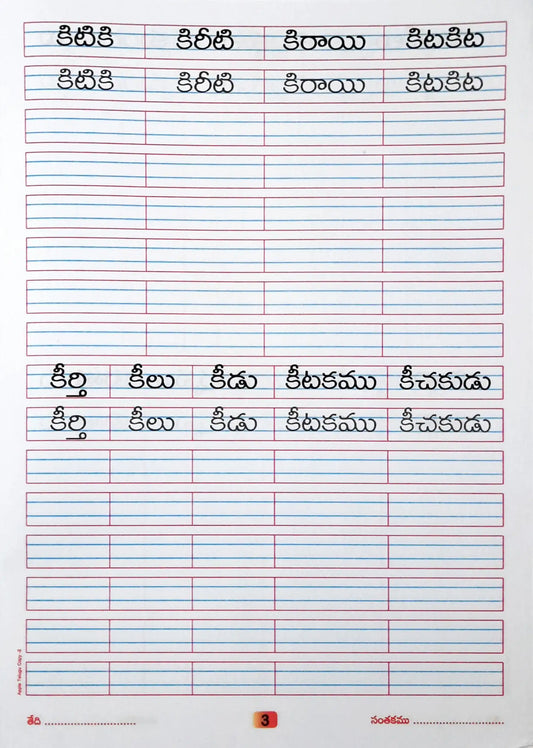 కిటికి కిరీటి కిరాయి కిటకిట
కిటికి కిరీటి కిరాయి కిటకిట
కీర్తి కీలు కీడు కీటకము కీచకుడు
కీర్తి కీలు కీడు కీటకము కీచకుడు
Apple Telugu Copy -2
తేది ............................ 3 సంతకము ............................